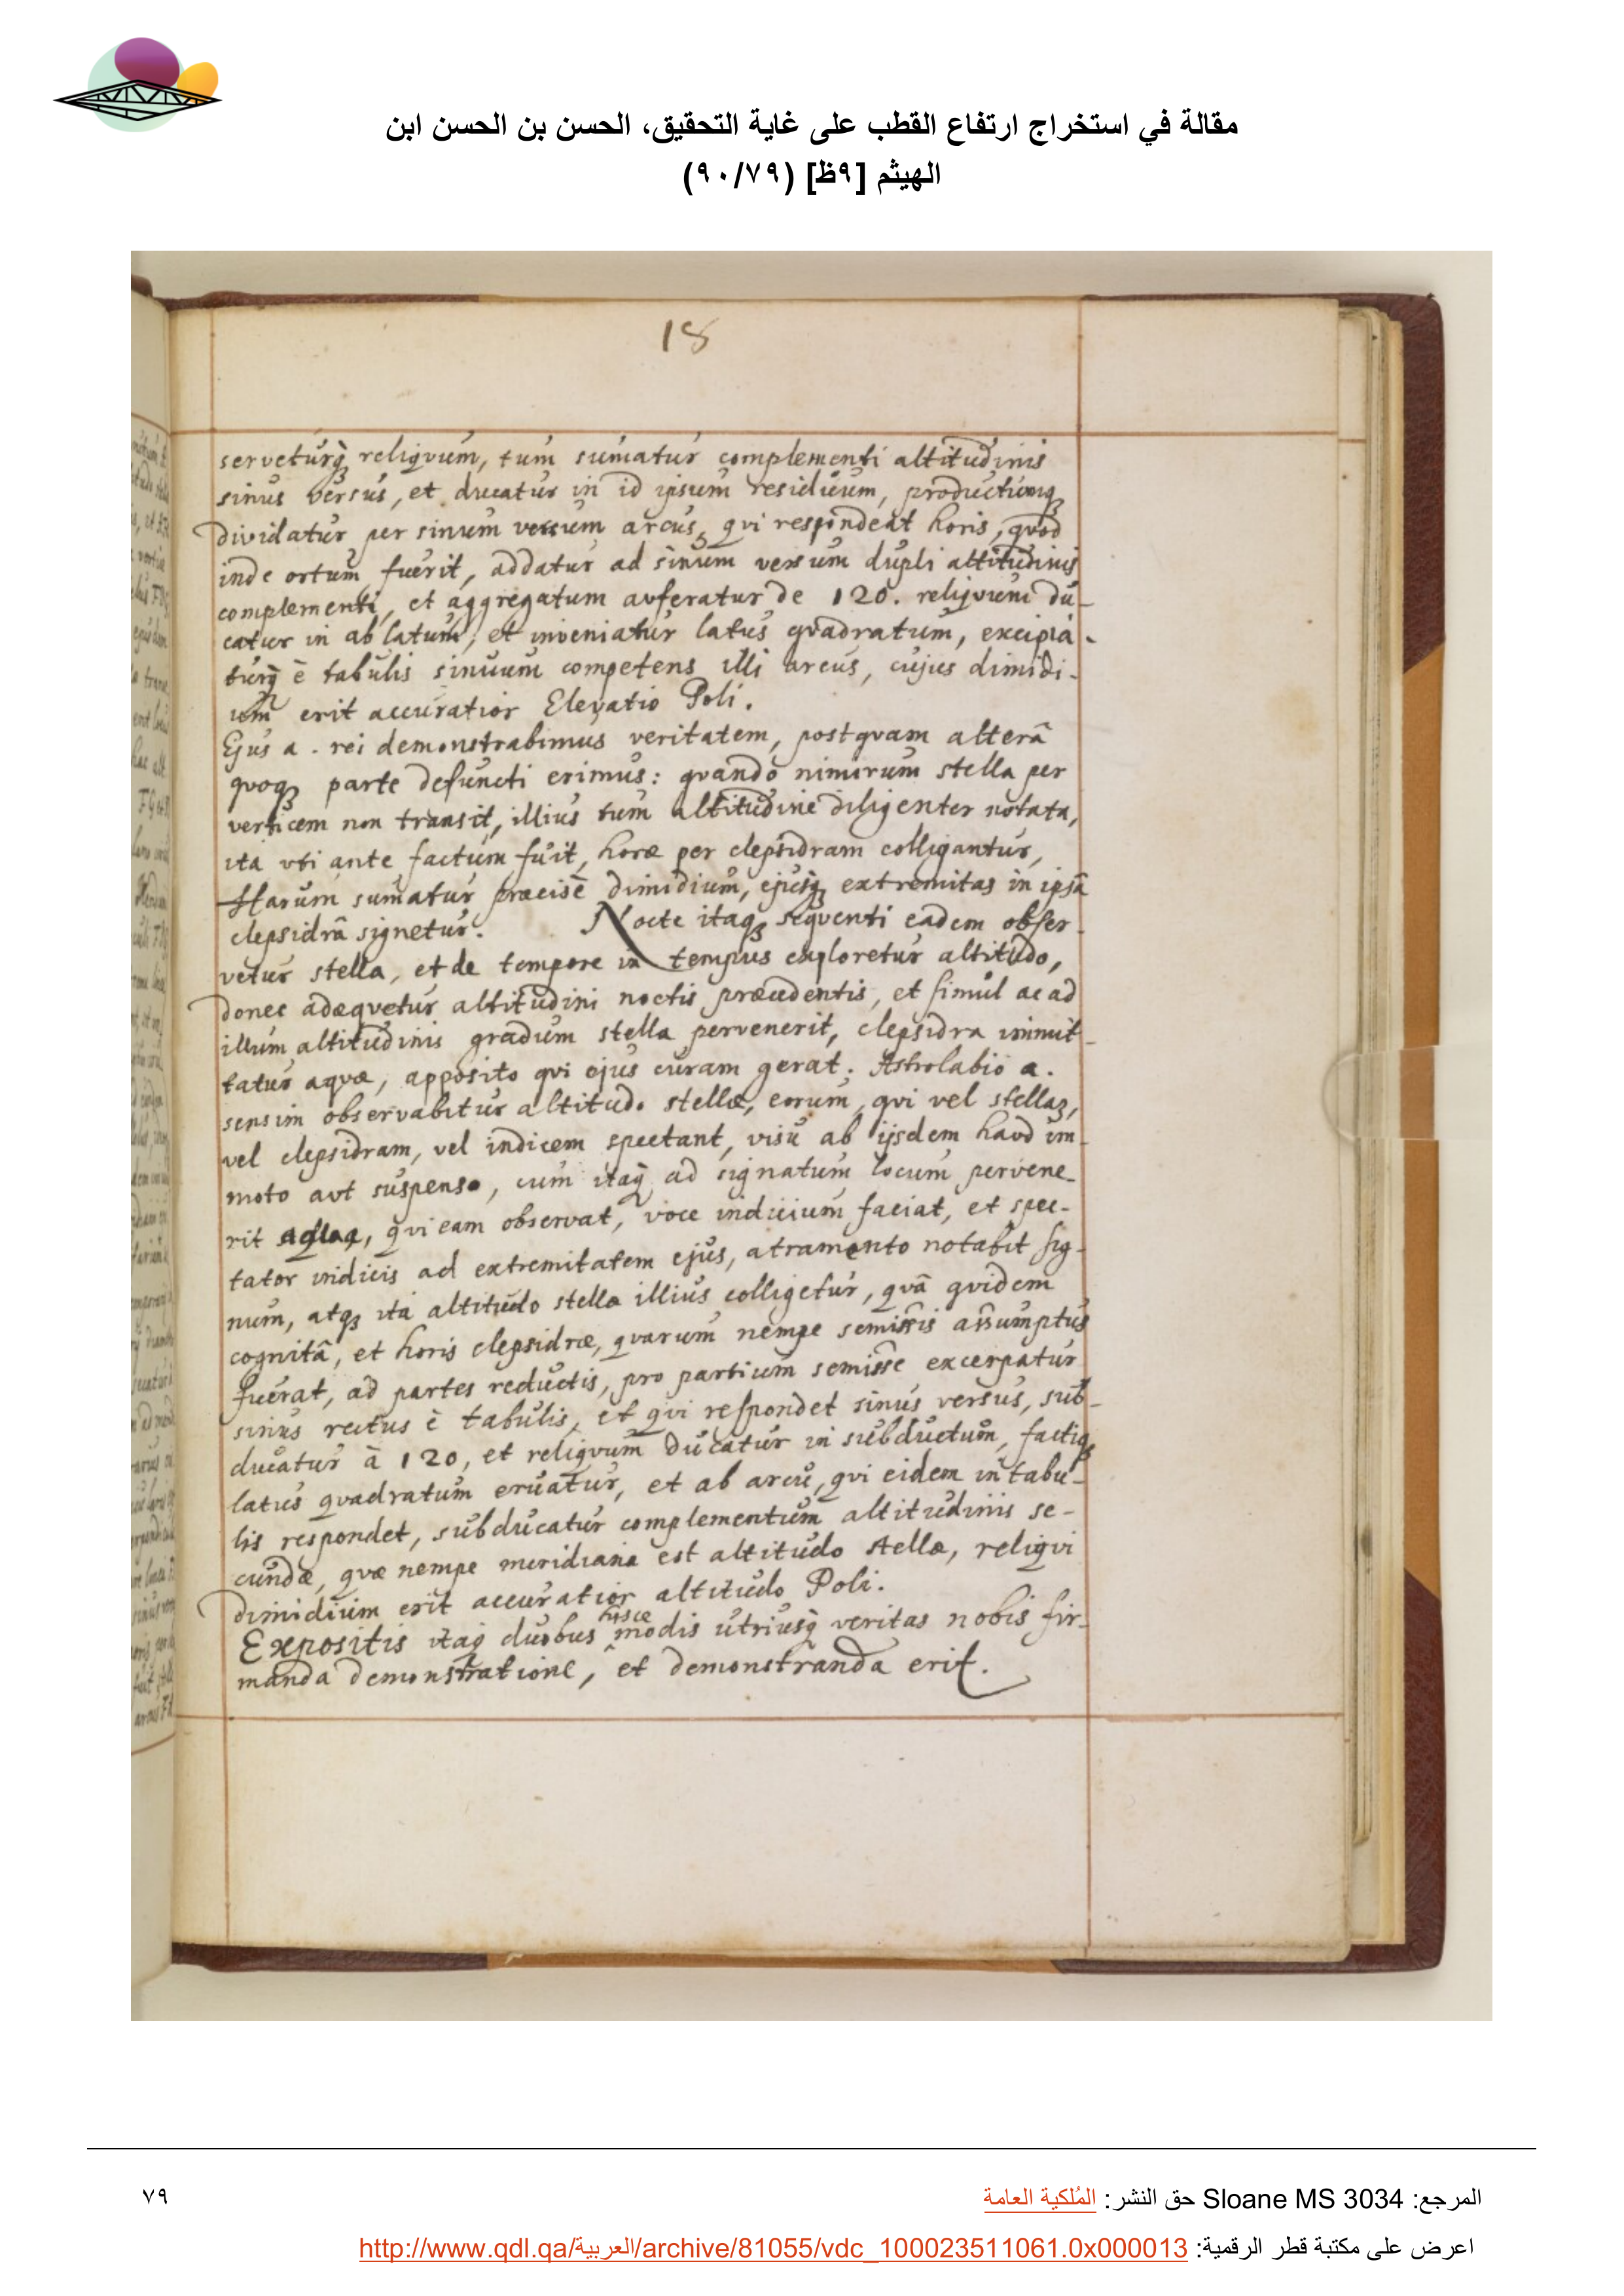 مقالة في استخراج ارتفاع القطب على غاية التحقيق، الحسن بن الحسن ابن
الهيثم [٩ظ] (٩٠/٧٩)
18
servetúrq̀ꝫ reliqvum, tum sumatur complementi altitudinis
sinus versus, et ducatur in id ipsum residuum, productumqꝫ
dividatur per sinum versum arcus, qvi respondeat horis, qvod
inde ortum fuerit, addatur ad sinum versum dupli altitudinis
complementi, et aggregatum auferatur de 120. reliqvum du-
catur in ablatum, et inveniatur latus qvadratum, excipia-
turq̀ è tabulis sinuum competens illi arcus, cujus dimidi-
um erit accuratior Elevatio Poli.
Ejus a. rei demonstrabimus veritatem, postqvam alterâ
quoqꝫ parte defuncti erimus: qvando nimirum stella per
verticem non transit, illius tum altitudine diligenter notata,
ita vti ante factum fuit, horæ per clepsidram colligantur,
Harum sumatur præcisè dimidium, ejusqꝫ extremitas in ipsâ
clepsidrâ signetur. Nocte itaqꝫ seqventi eadem obser-
vetur stella, et de tempore in tempus exploretur altitudo,
donec adæqvetur altitudini noctis præcedentis, et simul ac ad
illum altitudinis gradum stella pervenerit, clepsidra immit-
tatur aquæ, apposito qvi ejus curam gerat. Astrolabio a.
sensim observabitur altitudo stellæ, eorum, qvi vel stellaꝫ,
vel clepsidram, vel indicem spectant, visu ab ijsdem haud im-
moto aut suspenso, cum itaq̀ ad signatum locum pervene-
rit aqua, qvi eam observat, voce indicium faciat, et spec-
tator indicis ad extremitatem ejus, atramento notabit sig-
num, atqꝫ ita altitudo stellæ illius colligetur, qvâ qvidem
cognitâ, et horis clepsidræ, qvarum nempe semissis assumptus
fuerat, ad partes reductis, pro partium semisse excerpatur
sinus rectus è tabulis, et qvi respondet sinus versus, sub-
ducatur à 120, et reliqvum ducatur in subductum, factiqꝫ
latus qvadratum eruatur, et ab arcu, qvi eidem in tabu-
lis respondet, subducatur complementum altitudinis se-
cundæ, qvæ nempe meridiana est altitudo stellæ, reliqvi
dimidium erit accuratior altitudo Poli.
Expositis itaq̀ duobus hisce modis utriusq̀ veritas nobis fir-
manda demonstratione, et demonstranda erit.
المرجع: Sloane MS 3034 حق النشر: المُلكية العامة
٧٩
اعرض على مكتبة قطر الرقمية: http://www.qdl.qa/العربية/archive/81055/vdc_100023511061.0x000013